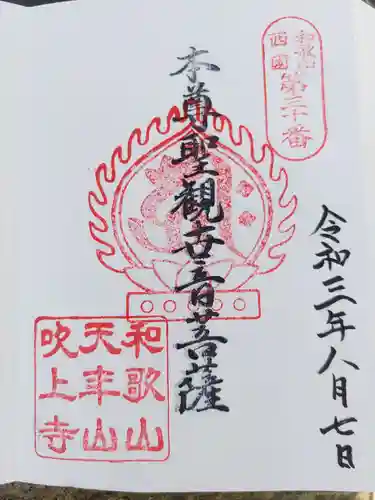 和歌山
西國
第三十番
本尊聖観世音菩薩
令和三年八月七日
和歌山
天年山
吹上寺